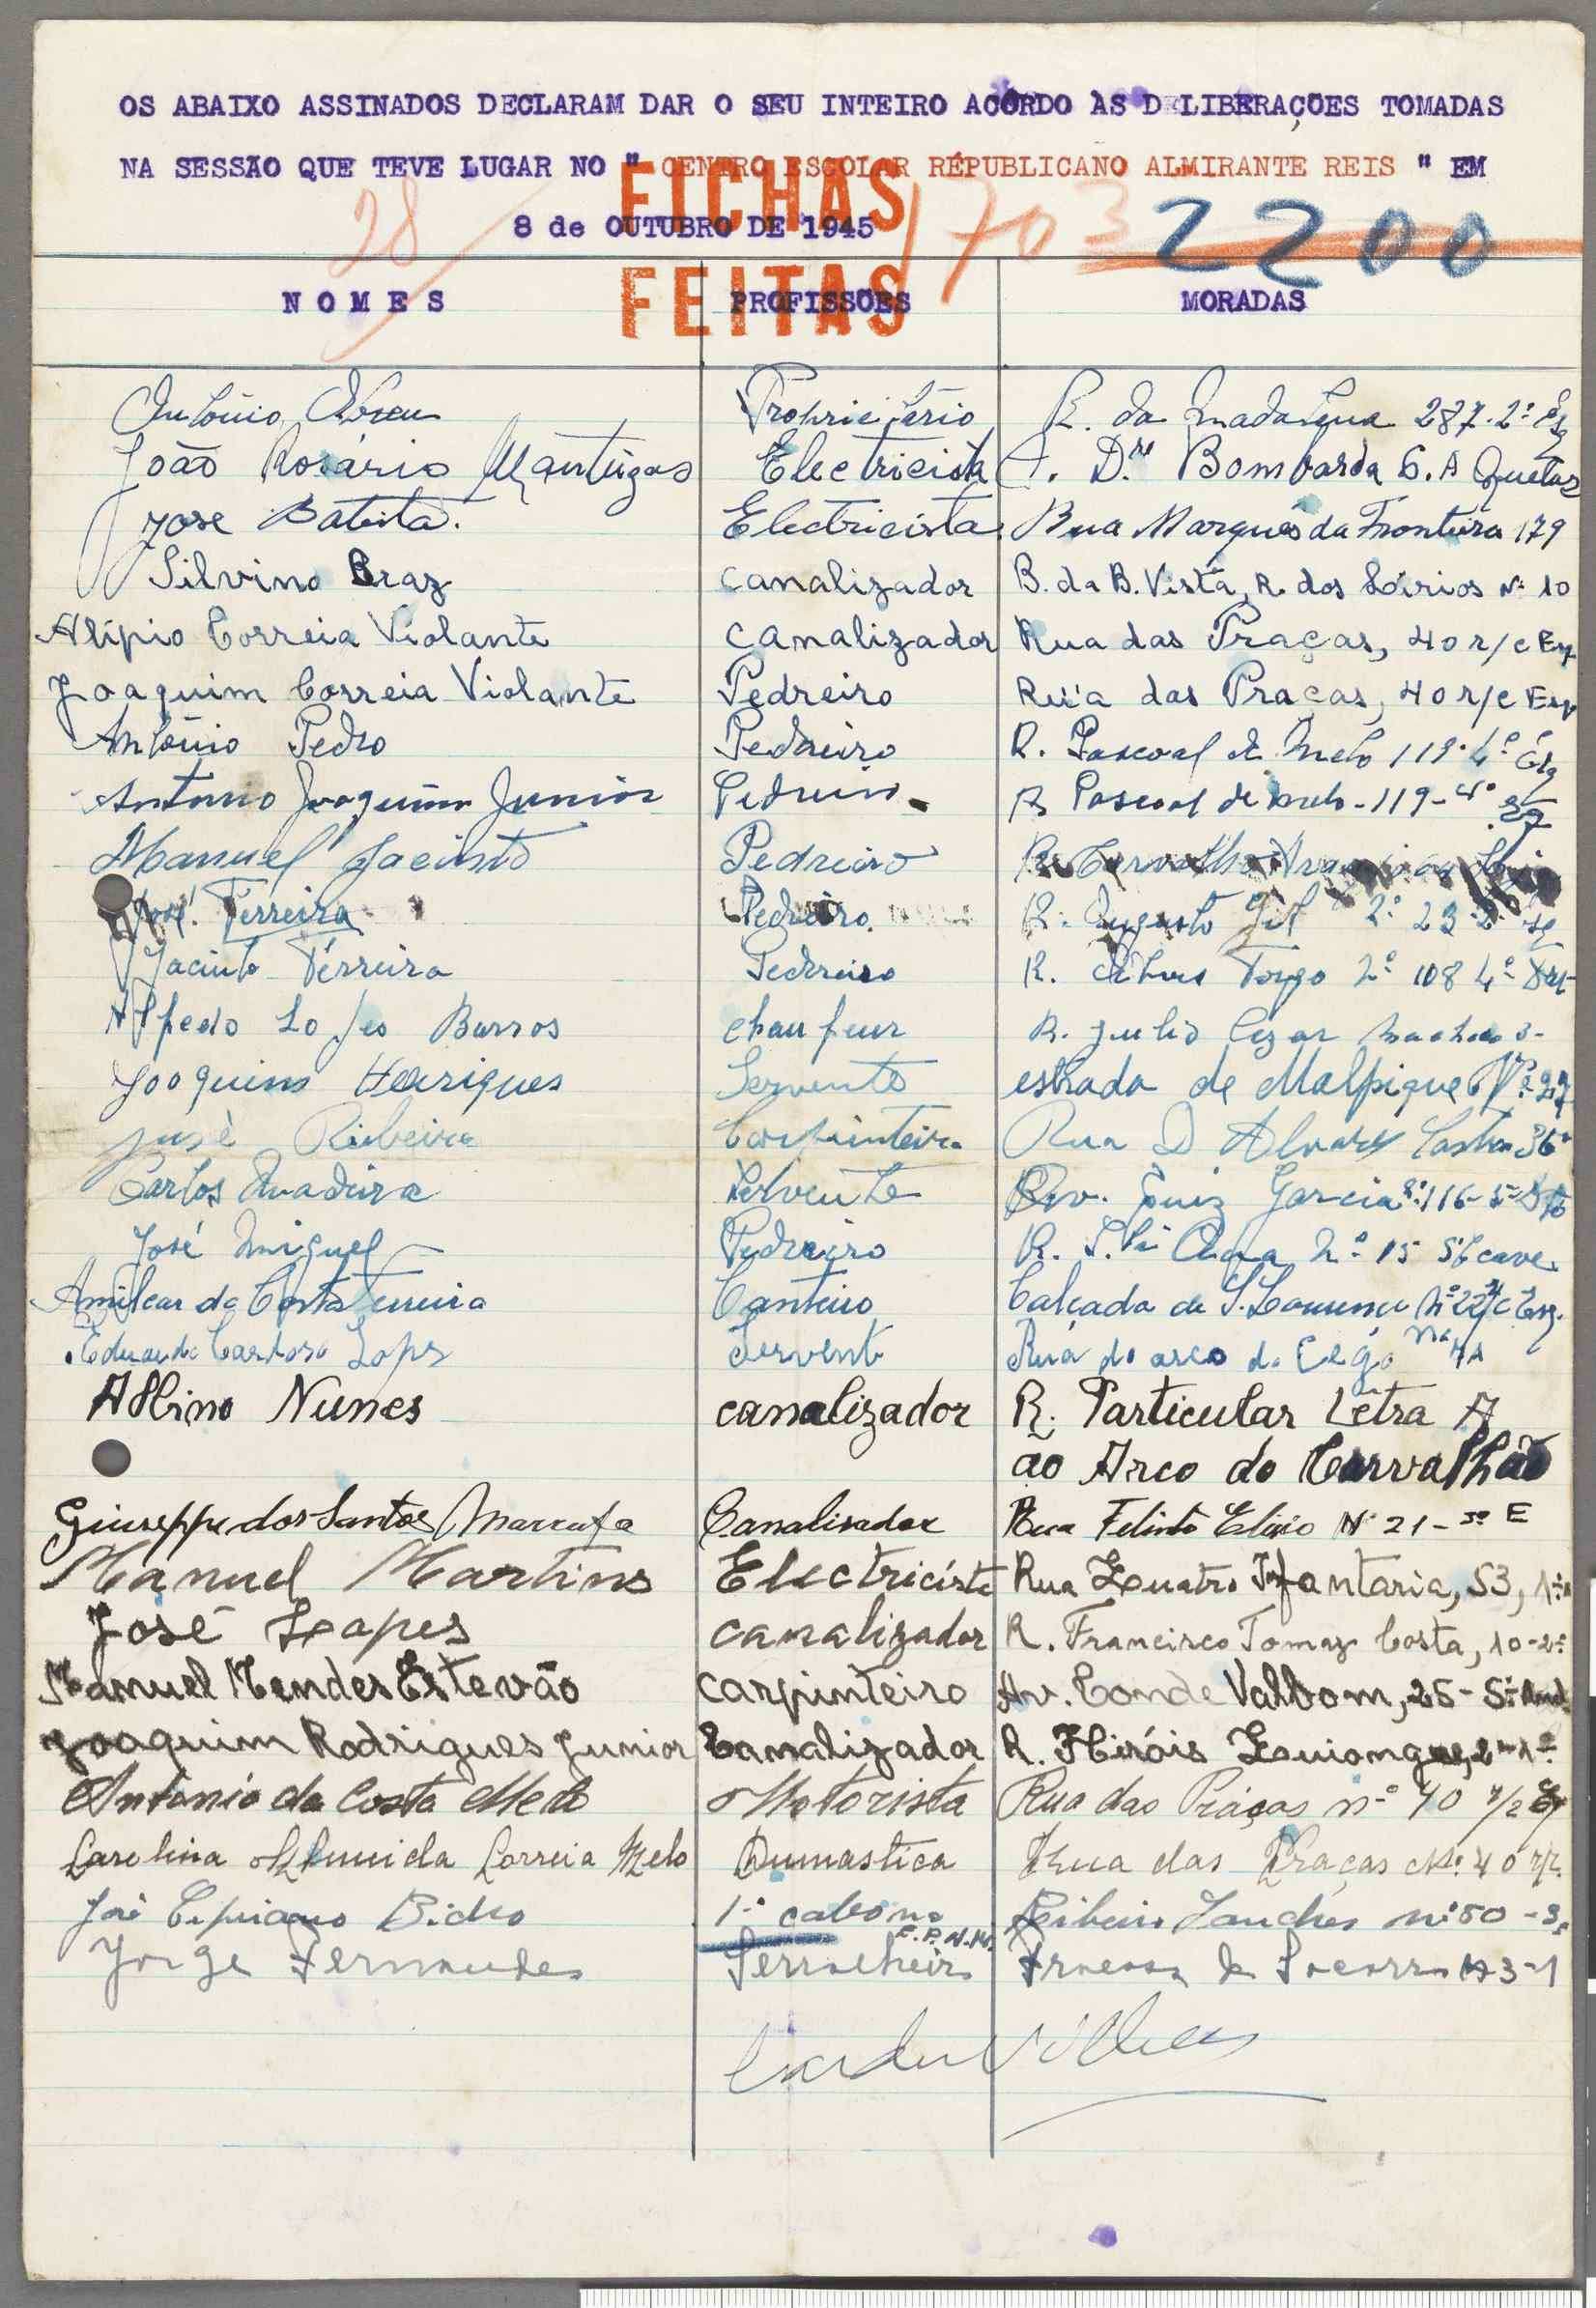 OS ABAIXO ASSINADOS DECLARAM DAR O SEU INTEIRO ACÔRDO ÀS DELIBERAÇÕES TOMADAS
NA SESSÃO QUE TEVE LUGAR NO " CENTRO ESCOLAR RÉPUBLICANO ALMIRANTE REIS " EM
8 de OUTUBRO DE 1945
FICHAS
FEITAS
28 1703 2200
NOMES PROFISSÕES MORADAS
António Abreu Proprietário R. da Madalena 287-2º Esq
João Rosário Manteigas Electricista Dr. Bombarda 6. A
José Batista. Electricista Rua Marquês da Fronteira 179
Silvino Braz canalizador B. da B. Vista, R. dos Lírios Nº 10
Alípio Correia Violante canalizador Rua das Praças, 40 r/c Esq
Joaquim Correia Violante Pedreiro Rua das Praças, 40 r/c Esq
António Pedro Pedreiro R. Pascoal de Melo 119-4º Esq
Antonio Joaquim Junior Pedreiro R Pascoal de Melo-119-4º Esq
Manuel Jacinto Pedreiro R.
José Ferreira Pedreiro. R. Augusto Gil Nº 23-2º Esq
Jacinto Ferreira Pedreiro R. Nº 108 4º Drt
Alfredo Lopes Barros chaufeur R. Julio Cezar Machado 3-
Joaquim Henriques Servente estrada de Malpique Nº 27
José Ribeiro Carpinteiro Rua D
Carlos Madeira Servente Av. Luiz Garcia
José Miguel Pedreiro R. Sta Ana Nº 15 S/cave.
Amilcar da Costa Ferreira Canteiro Calçada de S. Lourenço Nº 22 r/c Esq.
Eduardo Cardoso Lopes Servente Rua do arco do Cégo nº
Albino Nunes canalizador R. Particular Lêtra A
ao Arco do Carvalhão
Giuseppe dos Santos Canalisador Rua Felinto Elisio Nº 21-3º E
Manuel Martins Electricista Rua Infantaria, 53, 1º
José Lopes canalizador R. Francisco Tomaz Costa, 10-2º
Manuel Mendes Estevão carpinteiro Av. Conde Valbom, 25-5º And.
Joaquim Rodrigues Junior Canalizador R. Heróis
António da Costa Melo Motorista Rua das Praças nº 40 r/c Eq
Carolina Almeida Correia Melo Dumastica Rua das Praças Nº 40 r/c
José Cipriano Bicho 1º cabo na Ribeiro Sanches nº 50-3º
Jorge Fernandes Serralheiro Travessa do Socorro 3-1